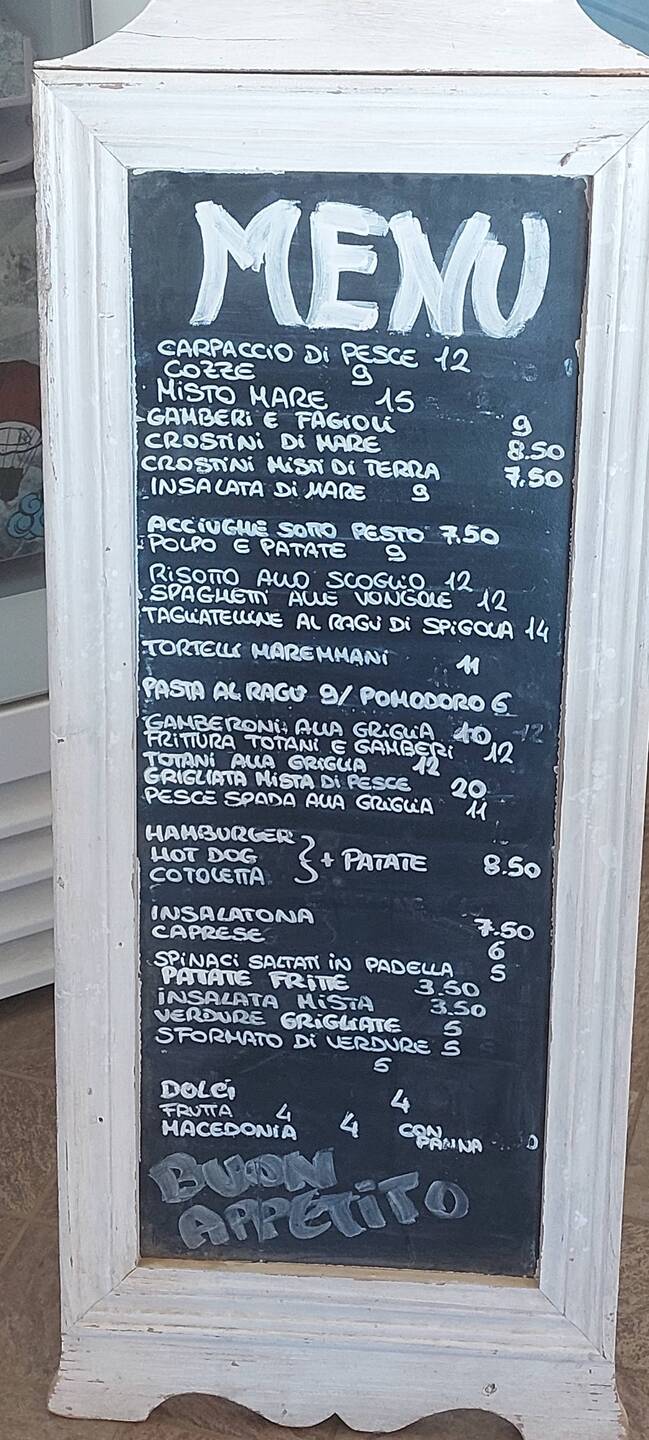 MENU
CARPACCIO DI PESCE 12
COZZE 9
MISTO MARE 15
GAMBERI E FAGIOLI 9
CROSTINI DI MARE 8.50
CROSTINI MISTI DI TERRA 7.50
INSALATA DI MARE 9
ACCIUGHE SOTTO PESTO 7.50
POLPO E PATATE 9
RISOTTO ALLO SCOGLIO 12
SPAGHETTI ALLE VONGOLE 12
TAGLIATELLINE AL RAGÙ DI SPIGOLA 14
TORTELLI MAREMMANI 11
PASTA AL RAGÙ 9/ POMODORO 6
GAMBERONI ALLA GRIGLIA 12
FRITTURA TOTANI E GAMBERI 12
TOTANI ALLA GRIGLIA 12
GRIGLIATA MISTA DI PESCE 20
PESCE SPADA ALLA GRIGLIA 11
HAMBURGER
HOT DOG } + PATATE 8.50
COTOLETTA
INSALATONA 7.50
CAPRESE 6
SPINACI SALTATI IN PADELLA 5
PATATE FRITTE 3.50
INSALATA MISTA 3.50
VERDURE GRIGLIATE 5
SFORMATO DI VERDURE 5
5
DOLCI 4
FRUTTA 4
MACEDONIA 4 CON PANNA
BUON
APPETITO